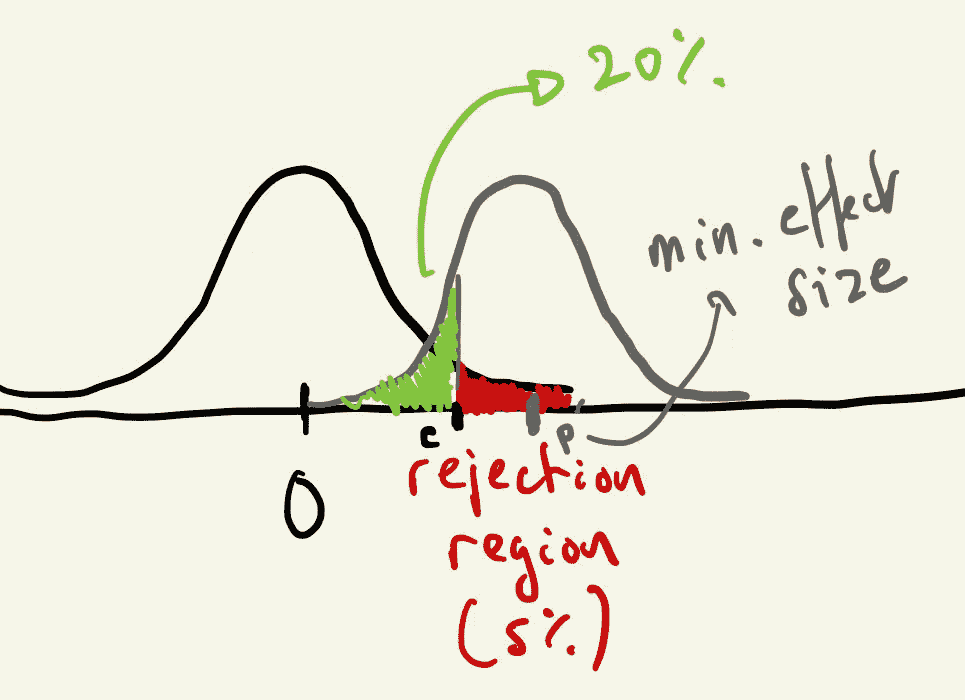 20%.
min. effect
size
0
c
p'
rejection
region
(5%)